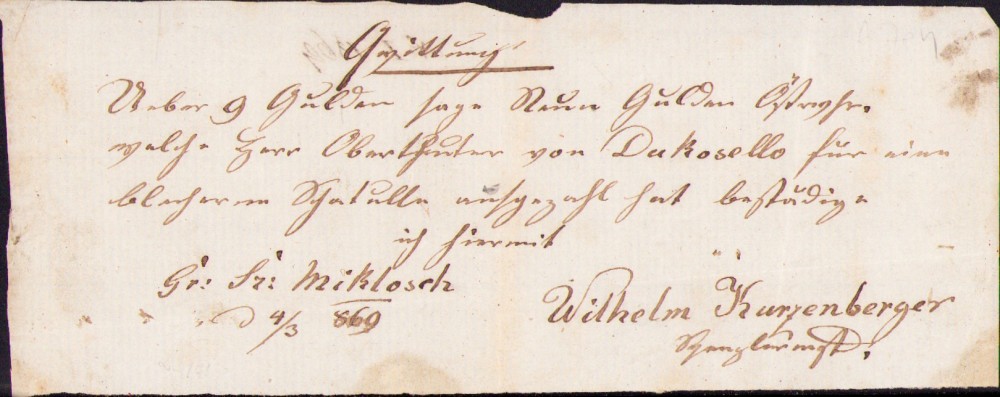 Quittung
Ueber 9 Gulden sage Neun Gulden Östwhr.
welche Herr Oberthuter von Dukosello für eine
blecherne Schatulle ausgezahl hat bestädige
ich hiermit
Gr: Sz: Miklosch
d 4/3 869
Wilhelm Kurzenberger
Spenglermst.